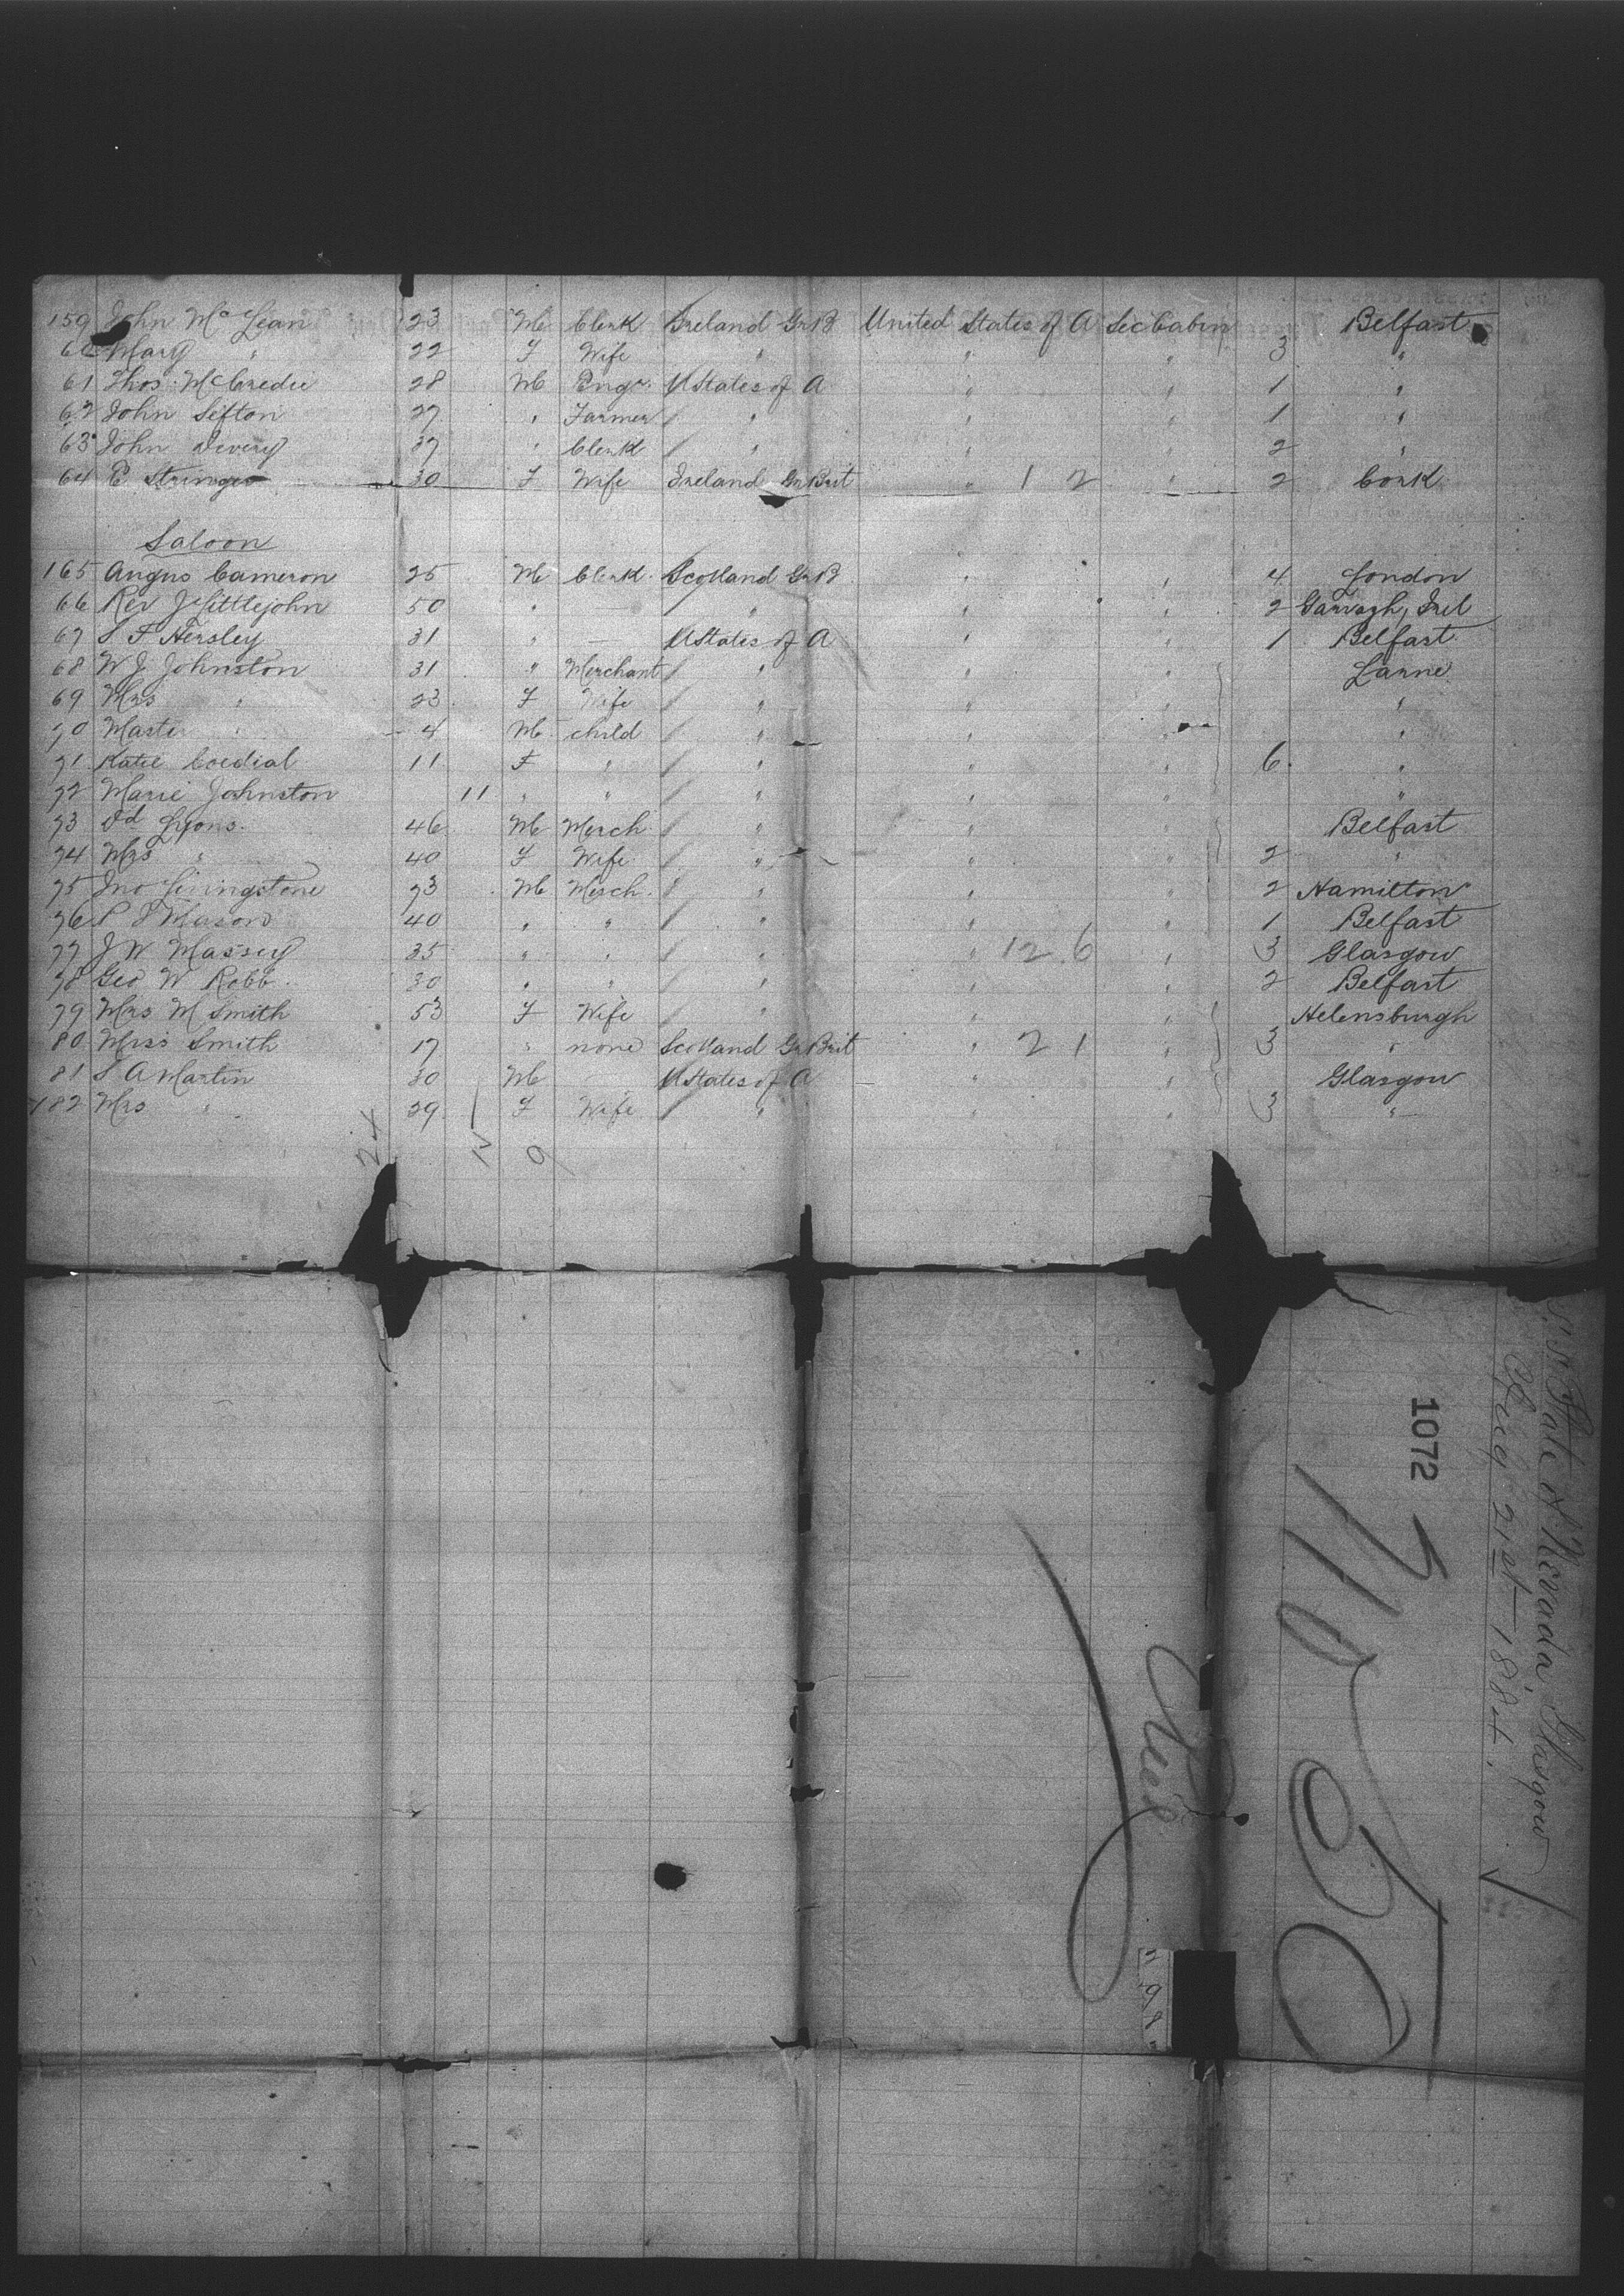 159 John McLean 23 M Clerk Ireland Gr B United States of A Sec Cabin Belfast
60 Mary " 22 F Wife " " " 3 "
61 Thos McCredie 28 M Engr. U States of A " " 1 "
62 John Sefton 27 " Farmer / " " " 1 "
63 John 37 " Clerk / " " " 2 "
64 E Stringer 30 F Wife Ireland Gr Brit " 1 2 " 2 Cork
Saloon
165 Angus Cameron 25 M Clerk Scotland Gr B " " 4 London
66 Rev J Littlejohn 50 " — " " " 2 Garvagh, Irel
67 S F Hersley 31 " — U States of A " " 1 Belfast
68 W J Johnston 31 " Merchant / " " " Larne
69 Mrs " 23 F Wife / " " " "
70 Master " 4 M child / " " " "
71 Katie Cordial 11 F " / " " " 6 "
72 Marie Johnston 11 " " / " " " "
73 Dd Lyons 46 M Merch / " " " Belfast
74 Mrs " 40 F Wife / " " " 2 "
75 Jno Livingstone 73 M Merch / " " " 2 Hamilton
76 P J Mason 40 " " / " " " 1 Belfast
77 J W Massey 35 " " / " " 12 6 " 3 Glasgow
78 Geo W Robb 30 " " / " " " 2 Belfast
79 Mrs M Smith 53 F Wife / " " " Helensburgh
80 Miss Smith 17 " none Scotland Gr Brit " 2 1 " 3 "
81 S A Martin 30 M — U States of A " " Glasgow
182 Mrs " 29 F Wife / " " " 3 "
24 12 9
S.S. State of Nevada, Glasgow
Aug 21st 1884.
1072